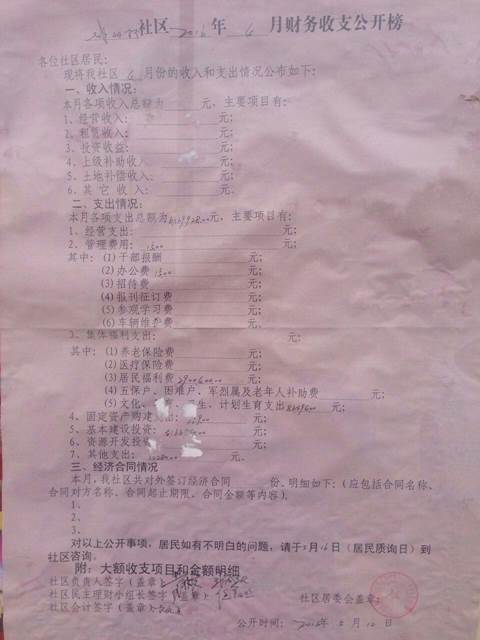 社区 2016 年 4 月财务收支公开榜
各位社区居民:
现将我社区 4 月份的收入和支出情况公布如下:
一、收入情况:
本月各项收入总额为 元,主要项目有:
1、经营收入: 元;
2、租赁收入: 元;
3、投资收益: 元;
4、上级补助收入 元;
5、土地补偿收入: 元;
6、其它收入: 元;
二、支出情况:
本月各项支出总额为 元,主要项目有:
1、经营支出: 元;
2、管理费用: 1500 元;
其中: (1)干部报酬 元;
(2)办公费 1500 元;
(3)招待费 元;
(4)报刊征订费 元;
(5)参观学习费 元;
(6)车辆维修费 元;
3、集体福利支出: 元;
其中: (1)养老保险费 元;
(2)医疗保险费 元;
(3)居民福利费 元;
(4)五保户、困难户、军烈属及老年人补助费 元;
(5)文化、 生、计划生育支出 元;
4、固定资产购建 元;
5、基本建设投资: 元;
6、资源开发投 元;
7、其他支出: 元;
三、经济合同情况
本月,我社区共对外签订经济合同 份。明细如下:(应包括合同名称、
合同对方名称、合同起止期限、合同金额等内容)。
1、
2、
3、
对以上公开事项,居民如有不明白的问题,请于5月16日(居民质询日)到
社区咨询。
附:大额收支项目和金额明细
社区负责人签字(盖章)
社区民主理财小组长签字(盖章)
社区会计签字(盖章) 社区居委会盖章:
公开时间: 2016 年 5 月 10 日